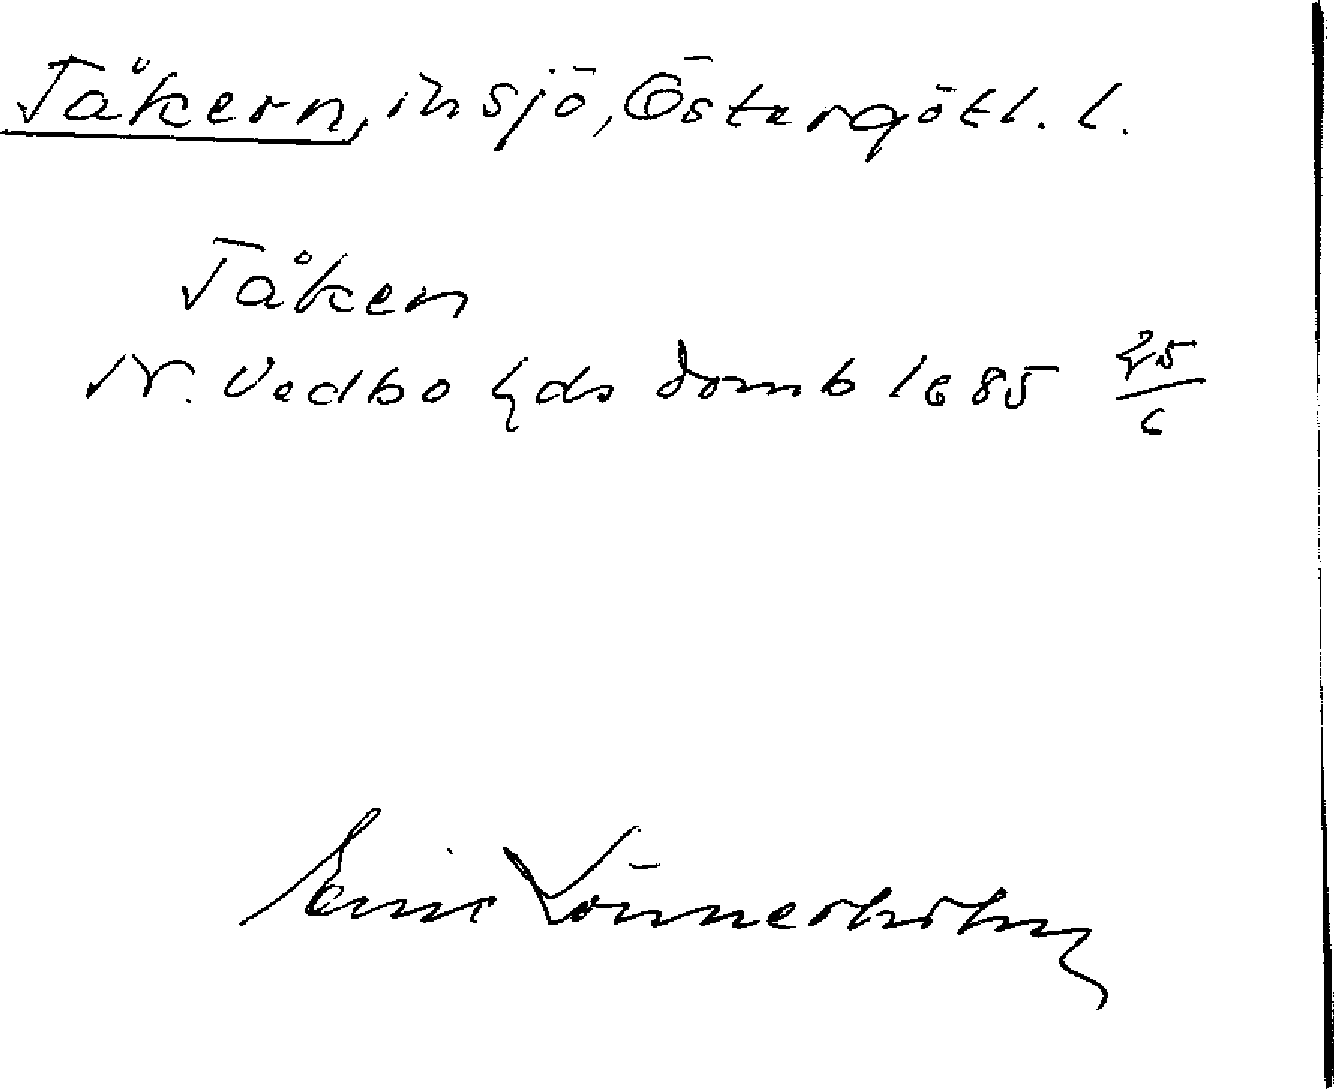 Tåkern, insjö, Östergötl. l.
Tåken
N. Vedbo hds domb 1685 25/6
Einar Lönnerholm